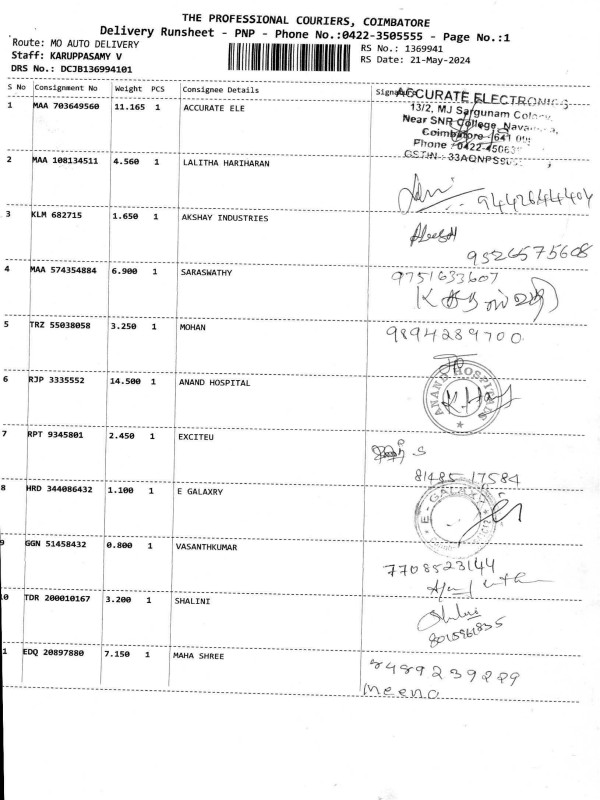 THE PROFESSIONAL COURIERS, COIMBATORE
Delivery Runsheet - PNP - Phone No.:0422-3505555 - Page No.:1
Route: MO AUTO DELIVERY
Staff: KARUPPASAMY V
DRS No.: DCJB136994101
RS No.: 1369941
RS Date: 21-May-2024
S No Consignment No Weight PCS Consignee Details Signature
1 MAA 703649560 11.165 1 ACCURATE ELE
ACCURATE ELECTRONICS
13/2, MJ Sargunam Colony,
Near SNR College, Nava
Coimbatore - 641 00
Phone : 0422-4506
GSTIN : 33AQNPS
2 MAA 108134511 4.560 1 LALITHA HARIHARAN
9442644404
3 KLM 682715 1.650 1 AKSHAY INDUSTRIES
9526575608
4 MAA 574354884 6.900 1 SARASWATHY
9751633607
5 TRZ 55038058 3.250 1 MOHAN
9894289700
6 RJP 3335552 14.500 1 ANAND HOSPITAL
ANAND HOSPITALS
7 RPT 9345801 2.450 1 EXCITEU
S
81485 17584
8 HRD 344086432 1.100 1 E GALAXRY
E - GALAXRY
9 GGN 51458432 0.800 1 VASANTHKUMAR
7708523144
10 TDR 200010167 3.200 1 SHALINI
8015961835
1 EDQ 20897880 7.150 1 MAHA SHREE
8489239889
Meena